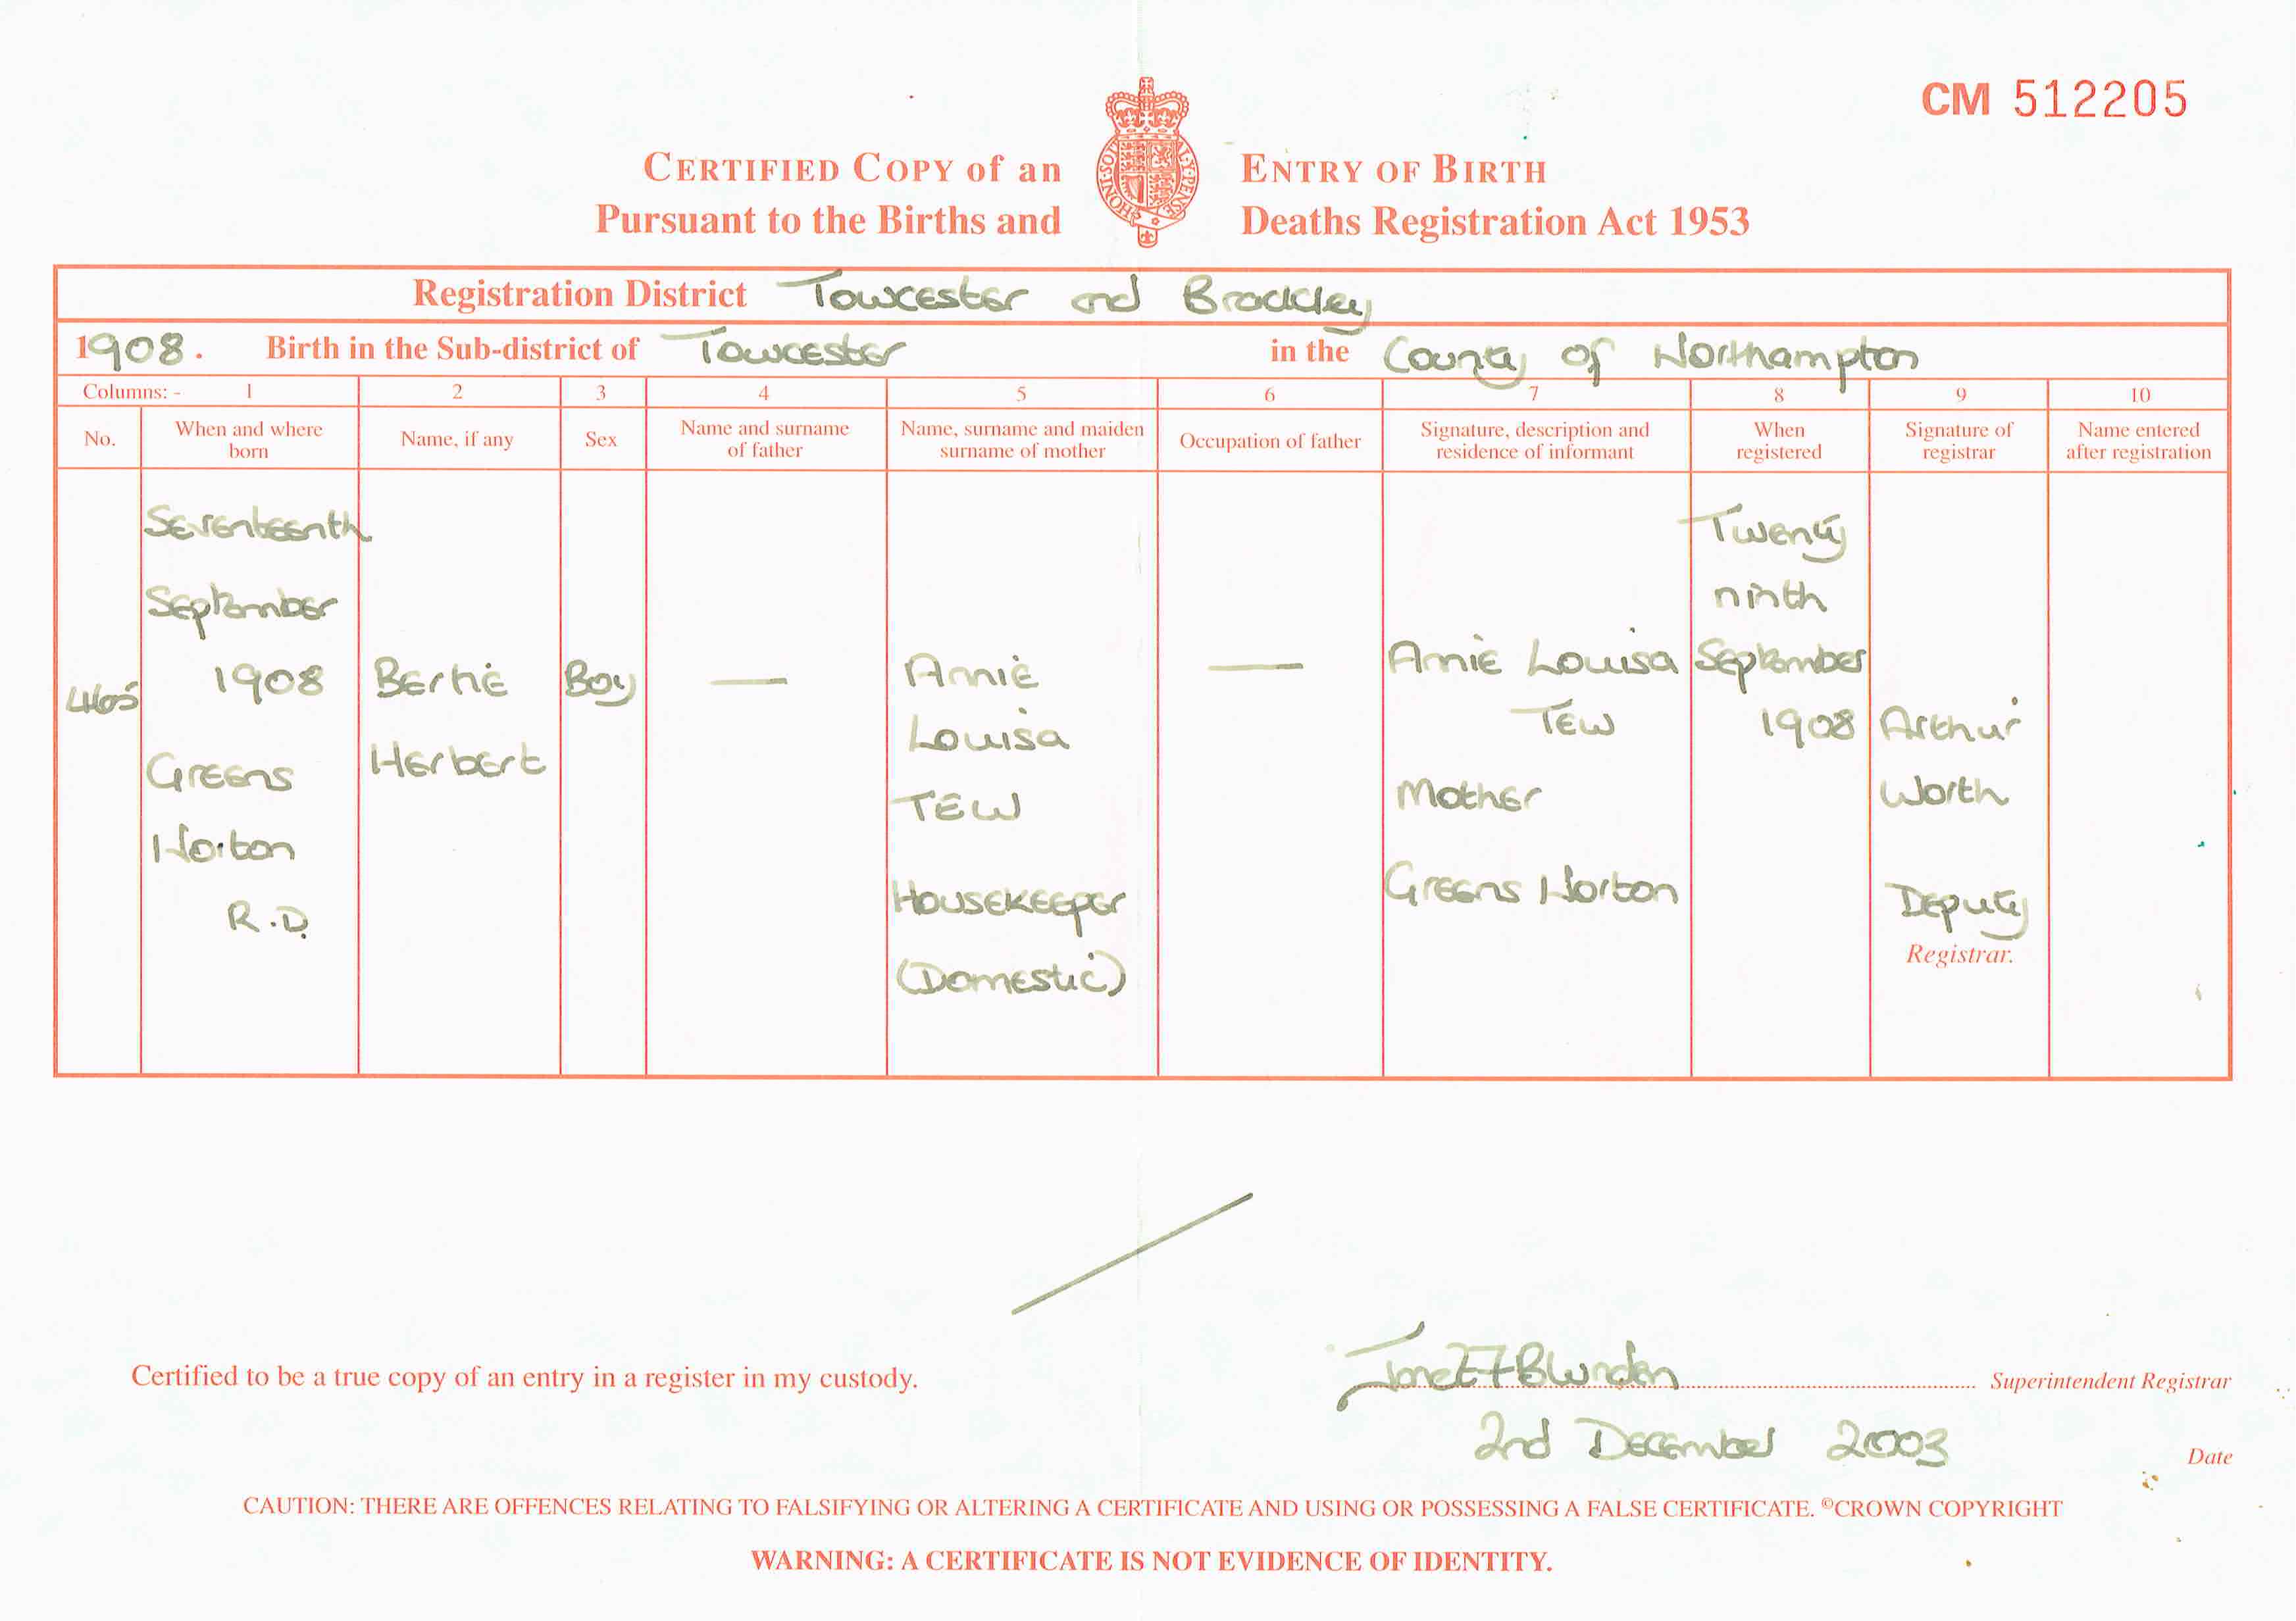 CM 512205
CERTIFIED COPY of an ENTRY OF BIRTH
Pursuant to the Births and Deaths Registration Act 1953
HONI·SOI AL·Y·PENSE
Registration District Towcester and Brackley
1908. Birth in the Sub-district of Towcester in the County of Northampton
Columns: - 1 2 3 4 5 6 7 8 9 10
No.
When and where
born
Name, if any
Sex
Name and surname
of father
Name, surname and maiden
surname of mother
Occupation of father
Signature, description and
residence of informant
When
registered
Signature of
registrar
Name entered
after registration
465
Seventeenth
September
1908
Greens
Norton
R.D.
Bertie
Herbert
Boy
—
Annie
Louisa
TEW
Housekeeper
(Domestic)
—
Annie Louisa
Tew
Mother
Greens Norton
Twenty
ninth
September
1908
Arthur
Worth
Deputy
Registrar.
Certified to be a true copy of an entry in a register in my custody.
Janet F Blunden Superintendent Registrar
2nd December 2003 Date
CAUTION: THERE ARE OFFENCES RELATING TO FALSIFYING OR ALTERING A CERTIFICATE AND USING OR POSSESSING A FALSE CERTIFICATE. ©CROWN COPYRIGHT
WARNING: A CERTIFICATE IS NOT EVIDENCE OF IDENTITY.